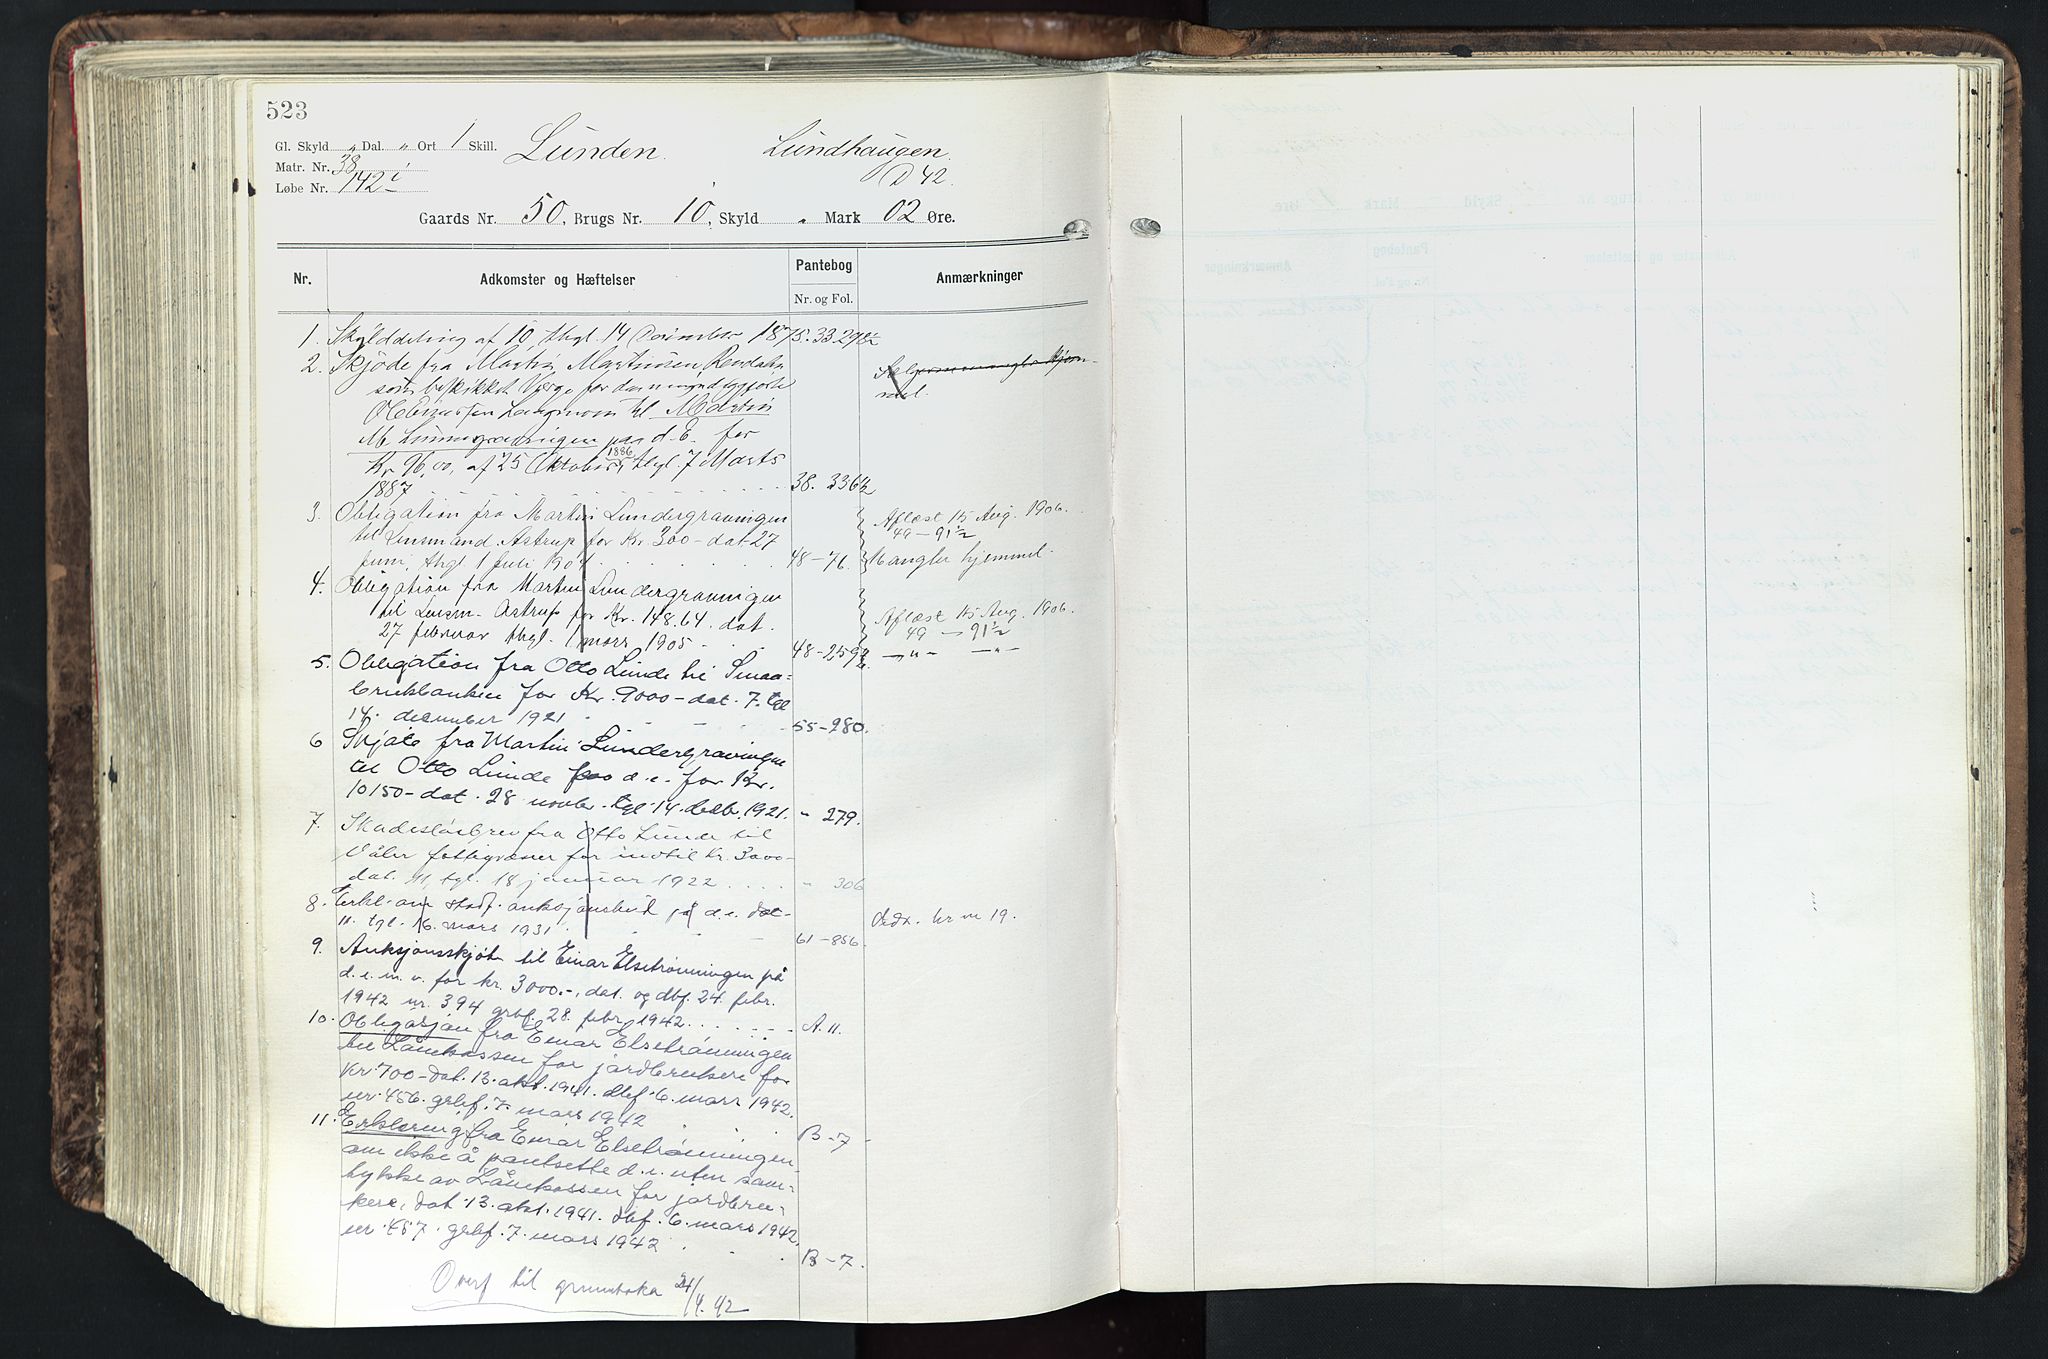 523
Gl. Skyld „ Dal. „ Ort 1 Skill. Lunden. Lundhaugen.
Matr. Nr. 38 D 42.
Løbe Nr. 142 i
Gaards Nr. 50, Brugs Nr. 10, Skyld „ Mark 02 Øre.
Nr. Adkomster og Hæftelser Pantebog Anmærkninger
Nr. og Fol.
1. Skylddeling af 10, thgl. 14 December 1875. 33. 298½
2. Skjøde fra Martin Martinsen Rendalen
som beskikket Værge for den
til Martin
M. Lundergravningen paa d. E. for
Kr. 96,00, af 25 Oktober 1886, thgl. 7 Marts
1887 38. 336½
mel.
3. Obligation fra Martin Lundergravningen Aflæst 15 Aug. 1906.
til Lensmand Astrup for Kr. 300 – dat. 27 49 – 91½
juni, thgl. 1 juli 1904 48–71. Mangler hjemmel.
4. Obligation fra Martin Lundergravningen
til Lensm. Astrup for Kr. 148.64. dat. Aflæst 15 Aug. 1906.
27 februar thgl. 1 mars 1905 49 – 91½
48–259½ –„– –„–
5. Obligation fra Otto Lunde til Smaa-
brukbanken for Kr. 9000 – dat. 7. tgl
14. december 1921 55–280.
6 Skjøte fra Martin Lundergravningen
til Otto Lunde paa d. e. for Kr.
10150 – dat. 28 novbr. tgl. 14. decbr. 1921. „ 279.
7. Skadesløsbrev fra Otto Lunde til
Våler fattigvæsen for indtil Kr. 3000 –
dat. 11, tgl. 18 januar 1922 „ 306
8. Erkl. om stadf. auksjonsbud på d. e. dat.
11. tgl. 16. mars 1931. 61–856.
9. Auksjonsskjøte til Einar Elsetrønningen på
d. e. m. v. for kr. 3000.–, dat. og dbf. 24. febr.
1942 nr. 394 grbf. 28. febr. 1942 A. 11.
10. Obligasjon fra Einar Elsetrønningen
til Lånekassen for jordbrukere for
kr. 700 – dat. 13. okt. 1941. dbf. 6. mars 1942.
nr. 456. grbf. 7. mars 1942 B – 7
11. Erklæring fra Einar Elsetrønningen
om ikke å pantsette d. e. uten sam-
tykke av Lånekassen for jordbru-
kere, dat. 13. okt. 1941. dbf. 6. mars 1942
nr. 457. grbf. 7. mars 1942 B – 7.
Overf til grunnboka 21/4. 42